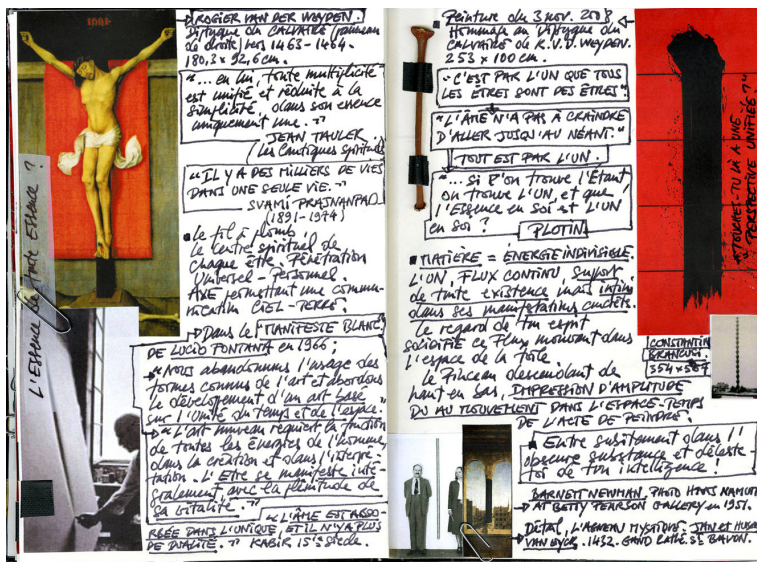 ROGIER VAN DER WEYDEN.
Diptyque du CALVAIRE (panneau
de droite) vers 1463-1464.
180,3 x 92,6 cm.
"... en lui, toute multiplicité
est unifiée et réduite à la
simplicité, dans son essence
uniquement une."
JEAN TAULER
(Les Cantiques spirituels
"IL Y A DES MILLIERS DE VIES
DANS UNE SEULE VIE."
SVAMI-PRAJNANPAD
(1891-1974)
L'ESSENCE de toute ESSENCE ?
Le fil à plomb,
le centre spirituel de
chaque être. Pénétration
Universel - Personnel.
AXE permettant une commu-
nication CIEL-TERRE.
Dans le MANIFESTE BLANC
DE LUCIO FONTANA en 1966;
"Nous abandonnons l'usage des
formes connues de l'art et abordons
le développement d'un art basé
sur l'Unité du temps et de l'espace."
"L'art nouveau requiert la fonction
de toutes les énergies de l'homme,
dans la création et dans l'interpré-
tation. L'ETRE se manifeste inté-
gralement, avec la plénitude de
sa vitalité."
"L'ÂME EST ABSO-
RBÉE DANS L'UNIQUE, ET IL N'Y A PLUS
DE DUALITÉ." KABIR 15e siècle.
Peinture du 3 nov. 2008
Hommage au Diptyque du
CALVAIRE de R.V.D. WEYDEN.
253 x 100 cm.
"C'EST PAR L'UN QUE TOUS
LES ÊTRES SONT DES ÊTRES"
"L'ÂME N'A PAS À CRAINDRE
D'ALLER JUSQU'AU NÉANT."
TOUT EST PAR L'UN.
"... si l'on trouve l'Étant
on trouve l'UN, et que
l'Essence en soi est l'UN
en soi ?
PLOTIN
"TOUCHES-TU LÀ A UNE
"PERSPECTIVE UNIFIÉE ?"
MATIÈRE = ÉNERGIE INDIVISIBLE.
L'UN, FLUX CONTINU, support
de toute existence mais infini
dans ses manifestations concrètes.
Le regard de ton esprit
solidifie ce Flux mouvant dans
l'espace de la toile.
Le Pinceau descendant de
haut en bas, IMPRESSION D'AMPLITUDE
DU AU MOUVEMENT DANS L'ESPACE-TEMPS
DE L'ACTE DE PEINDRE.
CONSTANTIN
BRANCUSI.
Entre subitement dans l'
obscure substance et déleste-
toi de ton intelligence !
BARNETT NEWMAN, PHOTO HANS NAMUTH
AT BETTY PEARSON GALLERY en 1951.
Détail, L'AGNEAU MYSTIQUE. JAN et HUBERT
VAN EYCK. 1432. GAND CATH. ST BAVON.